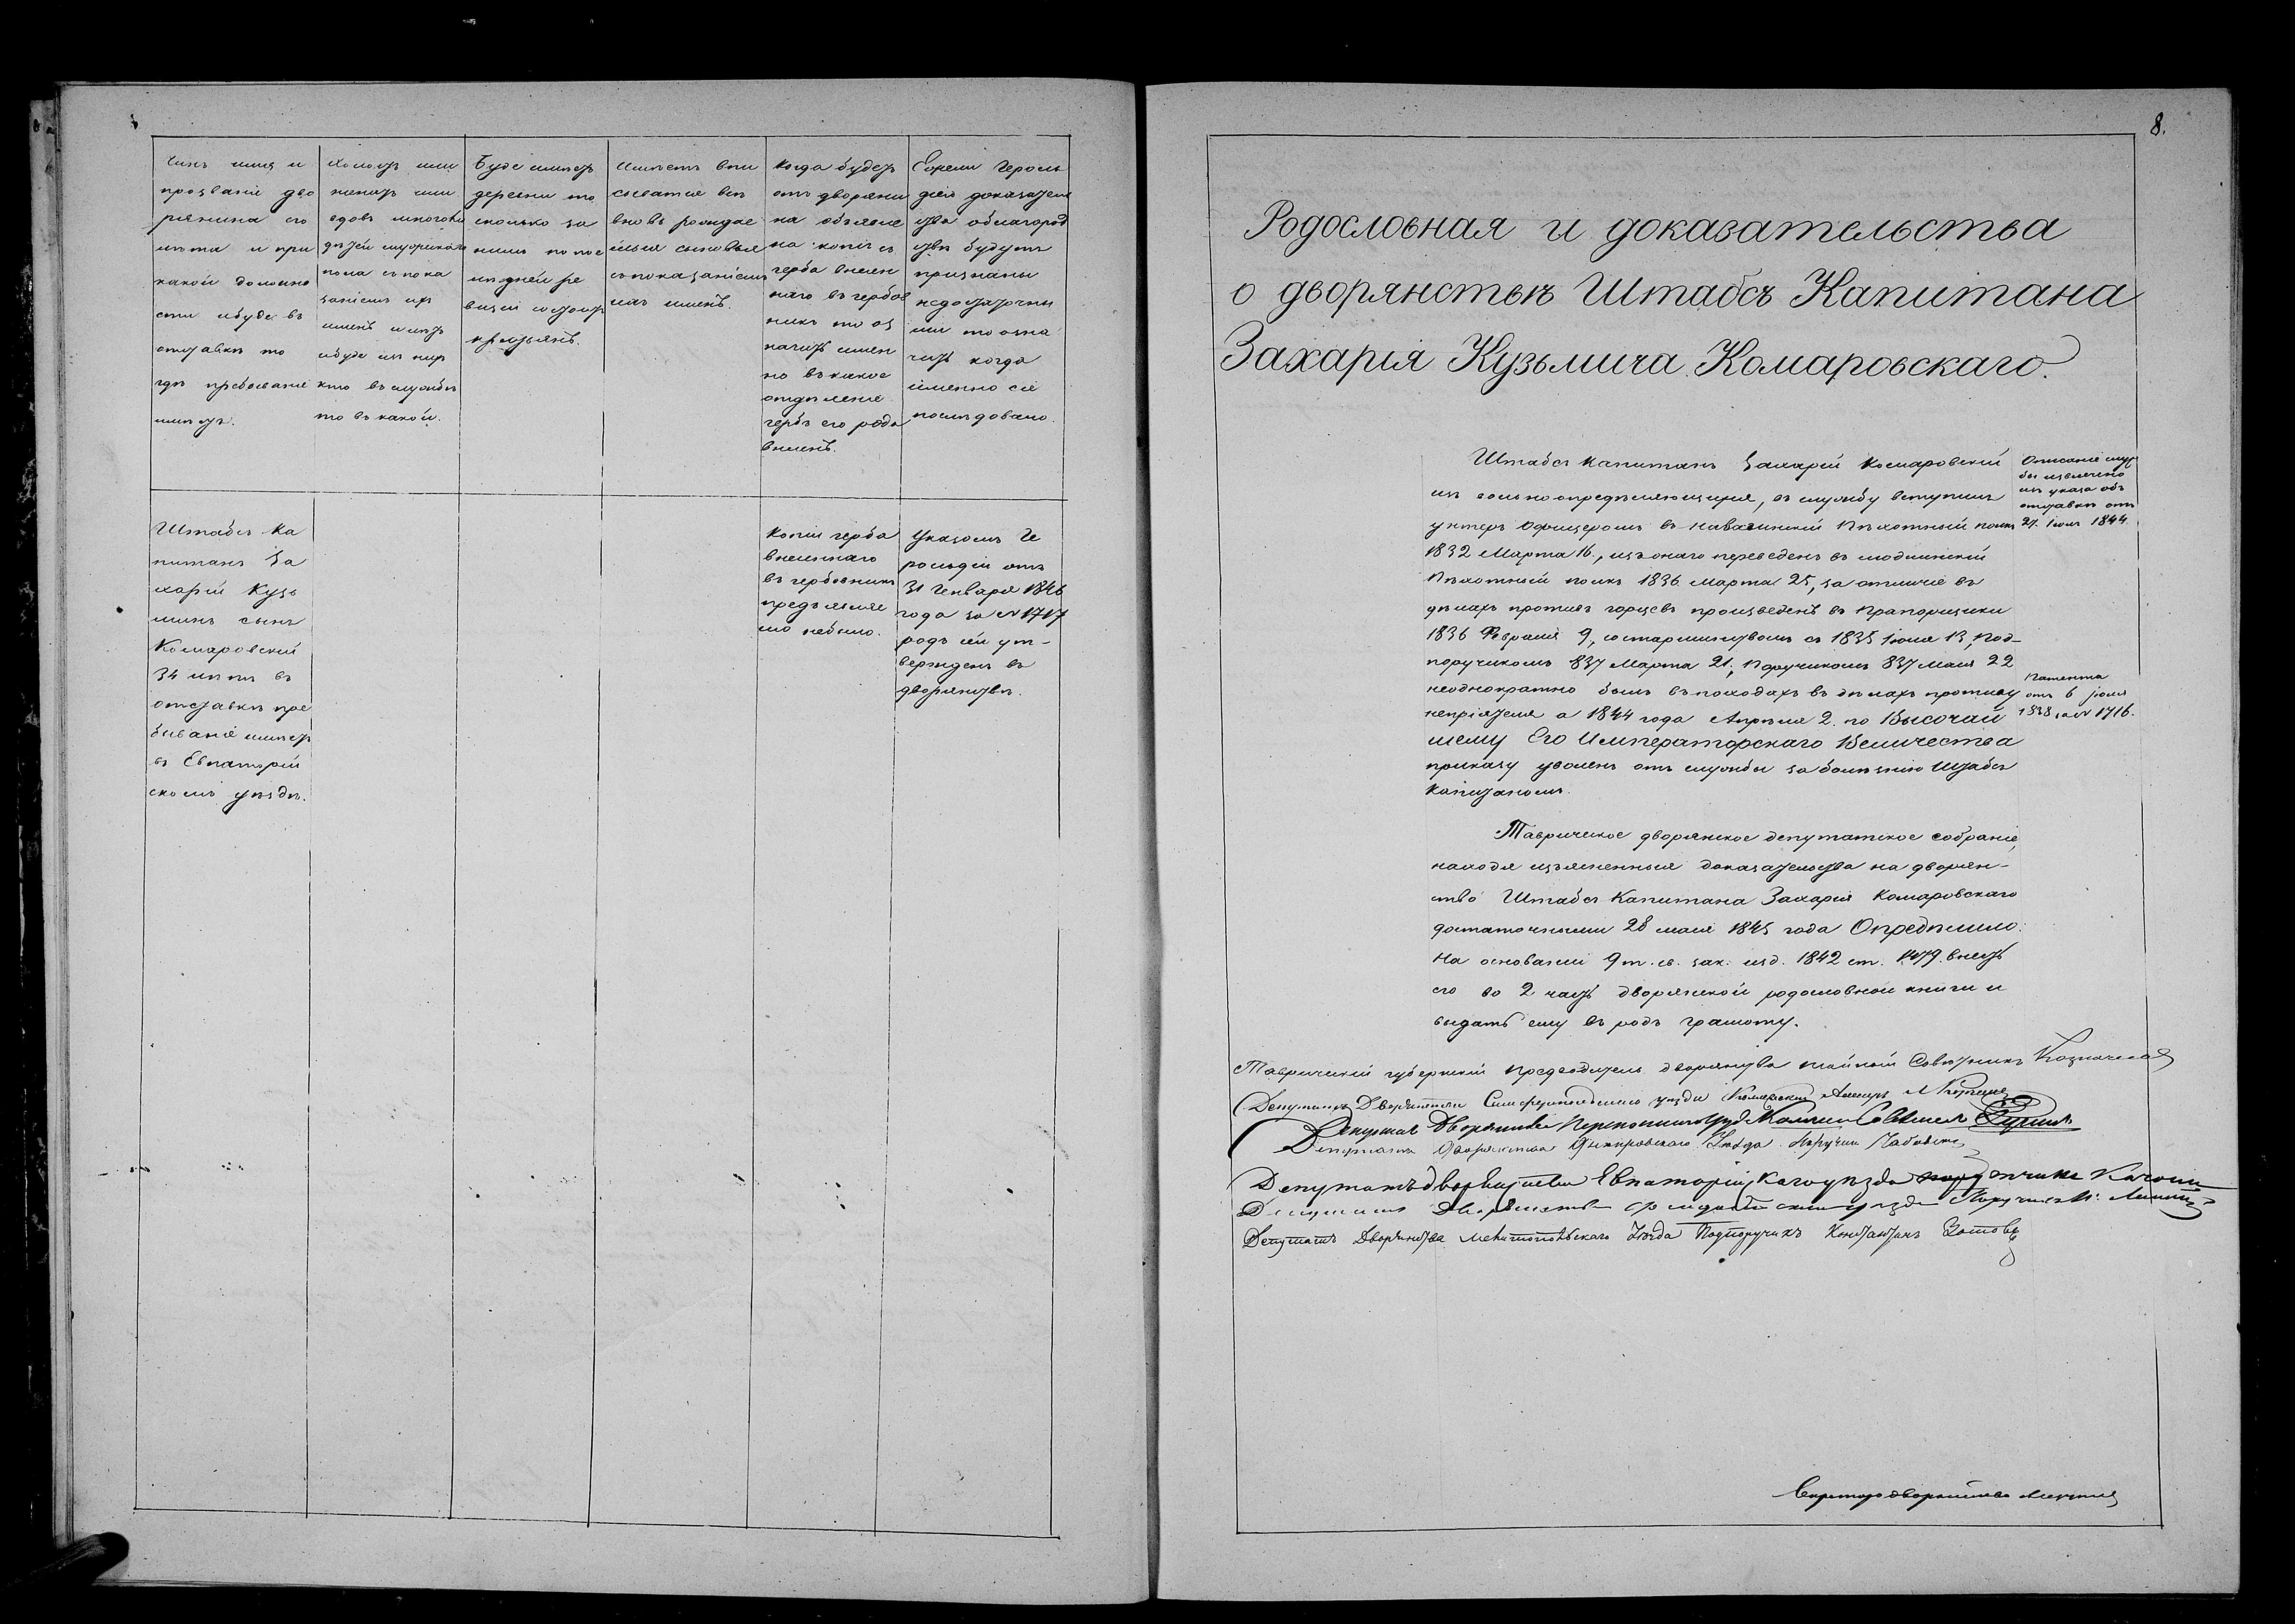 Чинъ имя и
прозваніе дво
рянина его
лѣта и при
какой должно
сти и буде въ
отставкѣ то
гдѣ пребываніе
имѣетъ.
Холостъ или
женатъ или
вдовъ много ли
дѣтей мужескаго
пола съ пока
заніемъ ихъ
именъ и лѣтъ
и буде изъ нихъ
кто въ службѣ
то въ какой.
Буде имѣетъ
деревни то
сколько за
нимъ по пос
лѣдней ре
визіи состоитъ
крестьянъ.
Имѣетъ впи
сыватся всѣ
вновь рождае
мыя сыновья
съ показаніемъ
ихъ именъ
Когда будетъ
отъ дворяни
на объявле
на копія съ
герба внесен
наго въ гербов
никъ то оз
начить имен
но въ какое
отдѣленіе
гербъ его рода
внесенъ.
Ежели Героль
діею доказатель
ства о благород
ствѣ будутъ
признаны
недостаточны
ми то озна
чить когда
именно сіе
послѣдовало.
Штабсъ Ка
питанъ За
харій Кузь
минъ сынъ
Комаровскій
34 лѣтъ въ
отставкѣ пре
бываніе имѣетъ
въ Евпаторій
скомъ уѣздѣ.
Копіи герба
внесеннаго
въ гербовникъ
предъявляе
мо небыло.
Указомъ Ге
рольдіи отъ
31 Генваря 1846
года за № 1717
родъ сей ут-
вержденъ въ
дворянствѣ.
8.
Родословная и доказательства
о дворянствѣ Штабсъ Капитана
Захарія Кузьмича Комаровскаго.
Штабсъ Капитанъ Захарій Комаровскій
изъ вольноопредѣляющихся, въ службу вступилъ
унтеръ Офицеромъ въ Навагинскій Пѣхотный полкъ
1832 Марта 16., изъ онаго переведенъ въ модлинскій
Пѣхотный полкъ 1836 марта 25, за отличіе въ
дѣлахъ противъ горцевъ произведенъ въ Прапорщики
1836 Февраля 9, со старшинствомъ съ 1835 іюля 13, Под-
поручикомъ 837 Марта 21, Поручикомъ 837 Мая 22
неоднократно былъ въ походахъ въ дѣлахъ противу
непріятеля а 1844 года Апрѣля 2. по Высочай
шему Его Императорскаго Величества
приказу уволенъ отъ службы за болѣзнію Штабсъ
Капитаномъ.
Описаніе служ
бы извлечено
изъ указа объ
отставкѣ отъ
27. 1844.
Патента
отъ 6 іюля
1838 за № 1716.
Таврическое дворянское депутатское собраніе,
находя изъясненныя доказательства на дворян-
ство Штабсъ Капитана Захарія Комаровскаго
достаточными 28 мая 1845 года Опредѣлило:
На основаніи 9 т. св. зак. изд. 1842 ст. внесть
его во 2 часть дворянской родословной книги и
выдать ему въ родъ грамоту.
Таврическій губернскій предводитель дворянства тайный Совѣтникъ Казначеевъ
Депутатъ Дворянства Симферопольскаго уѣзда
Депутатъ Дворянства Перекопскаго
Депутатъ Дворянства Днѣпровскаго Уѣзда
Депутатъ дворянства Евпаторійскаго уѣзда
Депутатъ Дворянства Феодосійскаго уѣзда
Депутатъ Дворянства Мелитопольскаго Уѣзда Подпоручикъ Константинъ Зотовъ
Секретарь дворянства